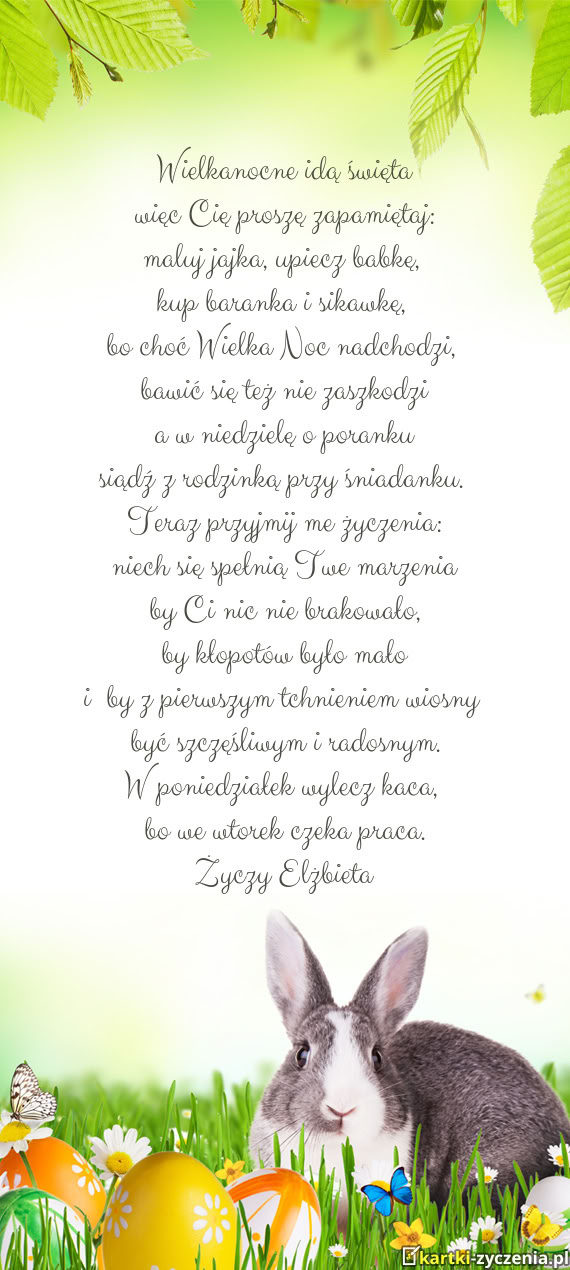 Wielkanocne idą święta
więc Cię proszę zapamiętaj:
maluj jajka, upiecz babkę,
kup baranka i sikawkę,
bo choć Wielka Noc nadchodzi,
bawić się też nie zaszkodzi
a w niedzielę o poranku
siądź z rodzinką przy śniadanku.
Teraz przyjmij me życzenia:
niech się spełnią Twe marzenia
by Ci nic nie brakowało,
by kłopotów było mało
i by z pierwszym tchnieniem wiosny
być szczęśliwym i radosnym.
W poniedziałek wylecz kaca,
bo we wtorek czeka praca.
Życzy Elżbieta
kartki-zyczenia.pl